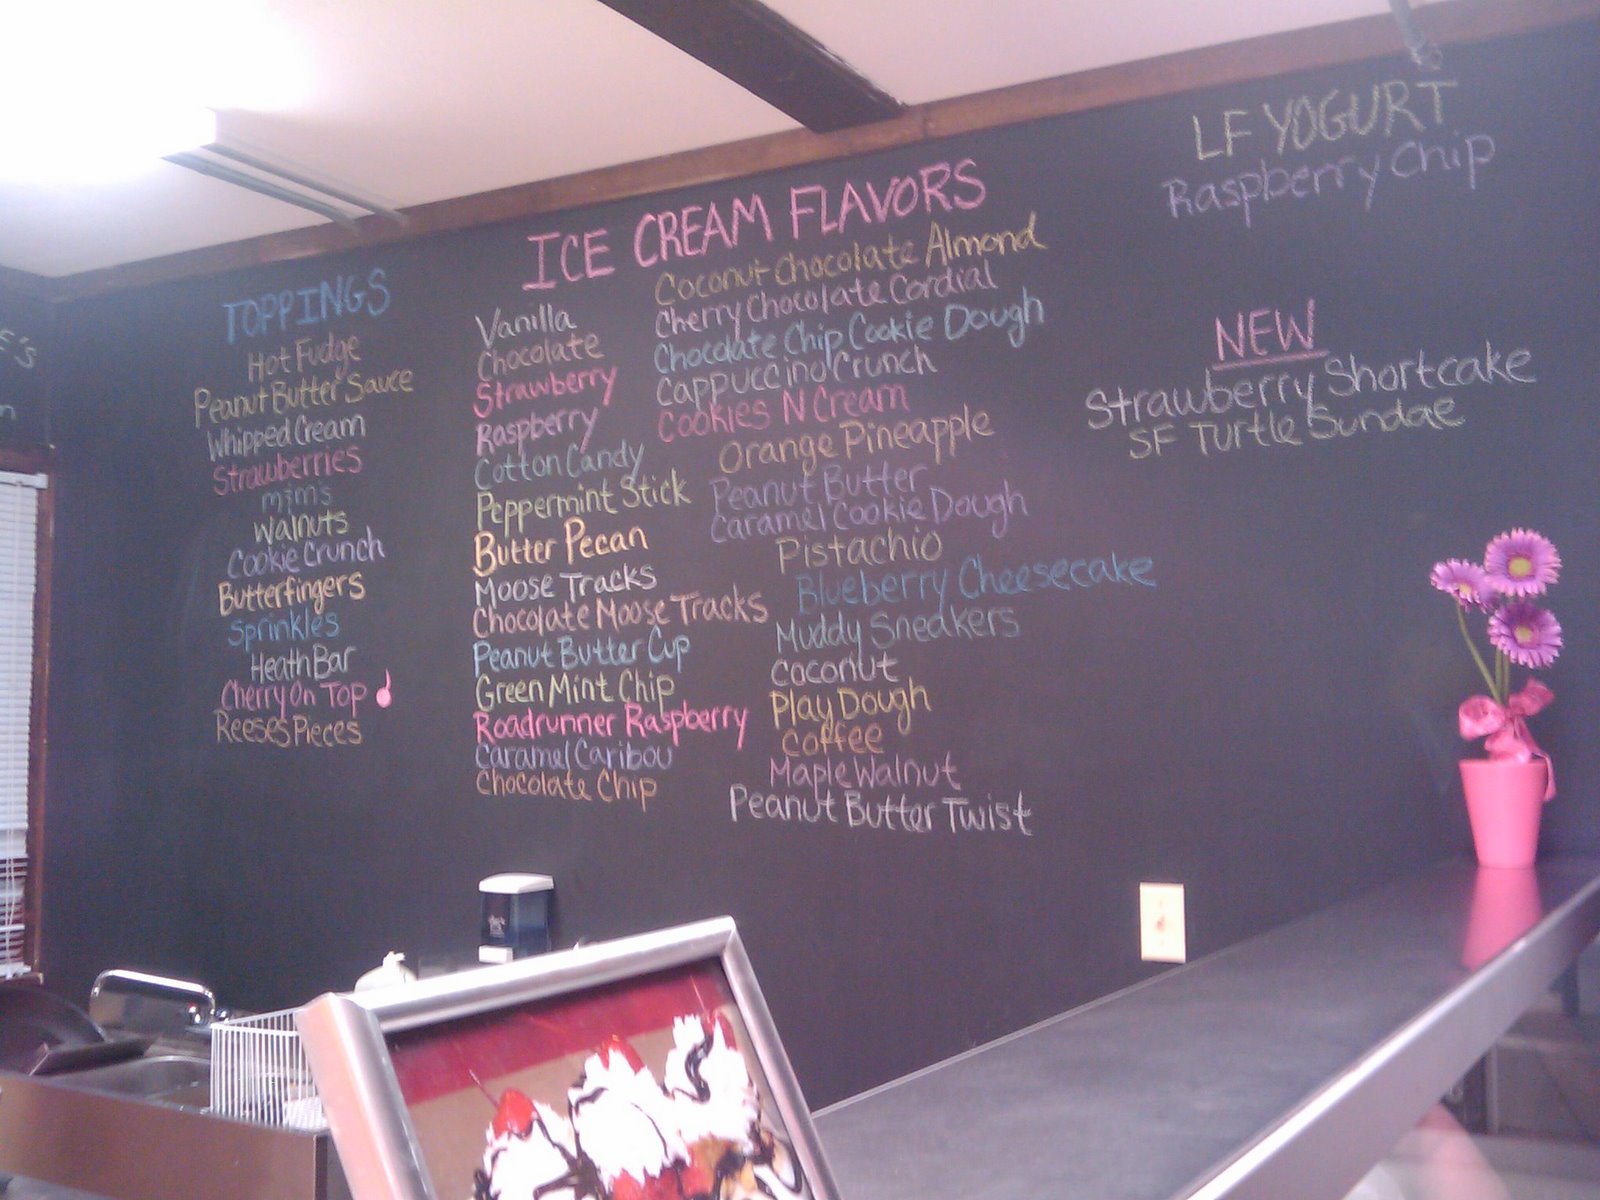 TOPPINGS
Hot Fudge
Peanut Butter Sauce
Whipped Cream
Strawberries
m&m's
Walnuts
Cookie Crunch
Butterfingers
Sprinkles
Heath Bar
Cherry On Top
Reeses Pieces
ICE CREAM FLAVORS
Vanilla
Chocolate
Strawberry
Raspberry
Cotton Candy
Peppermint Stick
Butter Pecan
Moose Tracks
Chocolate Moose Tracks
Peanut Butter Cup
Green Mint Chip
Roadrunner Raspberry
Caramel Caribou
Chocolate Chip
Coconut Chocolate Almond
Cherry Chocolate Cordial
Chocolate Chip Cookie Dough
Cappuccino Crunch
Cookies N Cream
Orange Pineapple
Peanut Butter
Caramel Cookie Dough
Pistachio
Blueberry Cheesecake
Muddy Sneakers
Coconut
Play Dough
Coffee
Maple Walnut
Peanut Butter Twist
LF YOGURT
Raspberry Chip
NEW
Strawberry Shortcake
SF Turtle Sundae